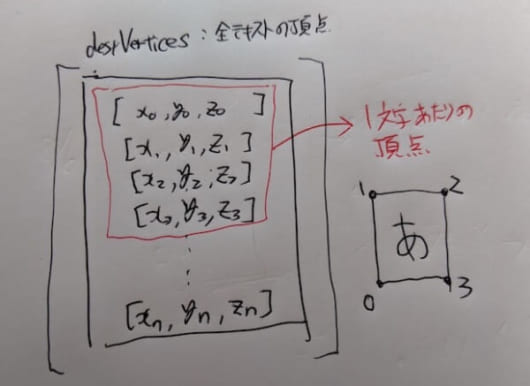 destVertices : 全テキストの頂点
[ x₀, y₀, z₀ ]
[x₁, y₁, z₁]
[x₂, y₂, z₂]
[x₃, y₃, z₃]
[xₙ, yₙ, zₙ]
1文字あたりの
頂点
1 2
あ
0 3